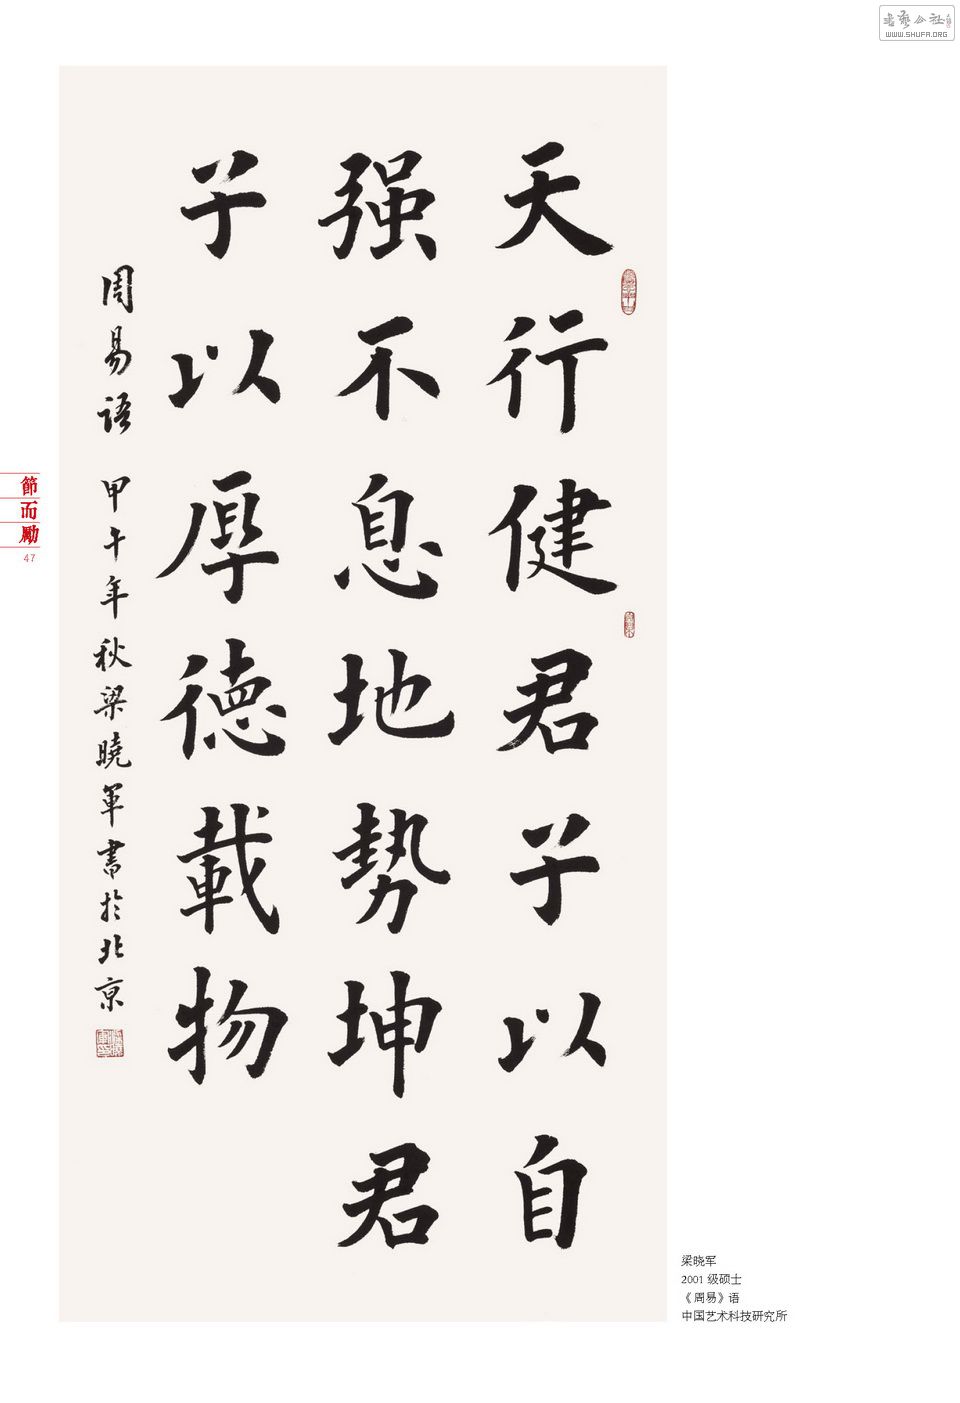 天行健君子以自
强不息地势坤君
子以厚德載物
周易语 甲午年秋梁曉军書於北京
節而勵
47
梁晓军
2001 级硕士
《周易》语
中国艺术科技研究所
書藝公社
WWW.SHUFA.ORG